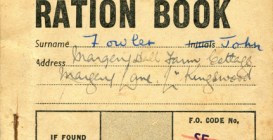 RATION BOOK
Surname Fowler Initials John
Address Margery Hall Farm Cottage
Margery Lane, Kingswood
F.O. CODE No.
IF FOUND
SE